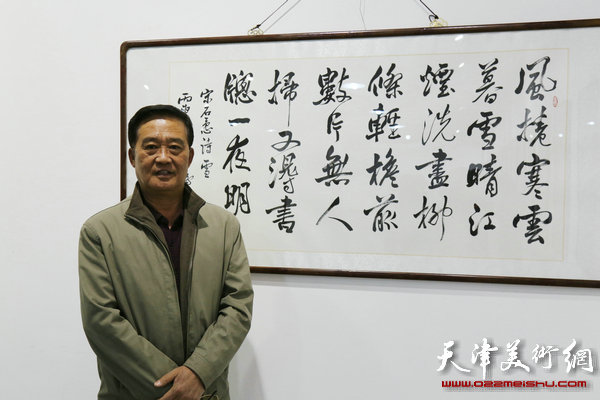 風捲寒雲
暮雪晴江
煙洗盡柳
條輕檐前
數片無人
掃又得書
牕一夜明
宋石惠诗雪
天津美術網
www.022meishu.com